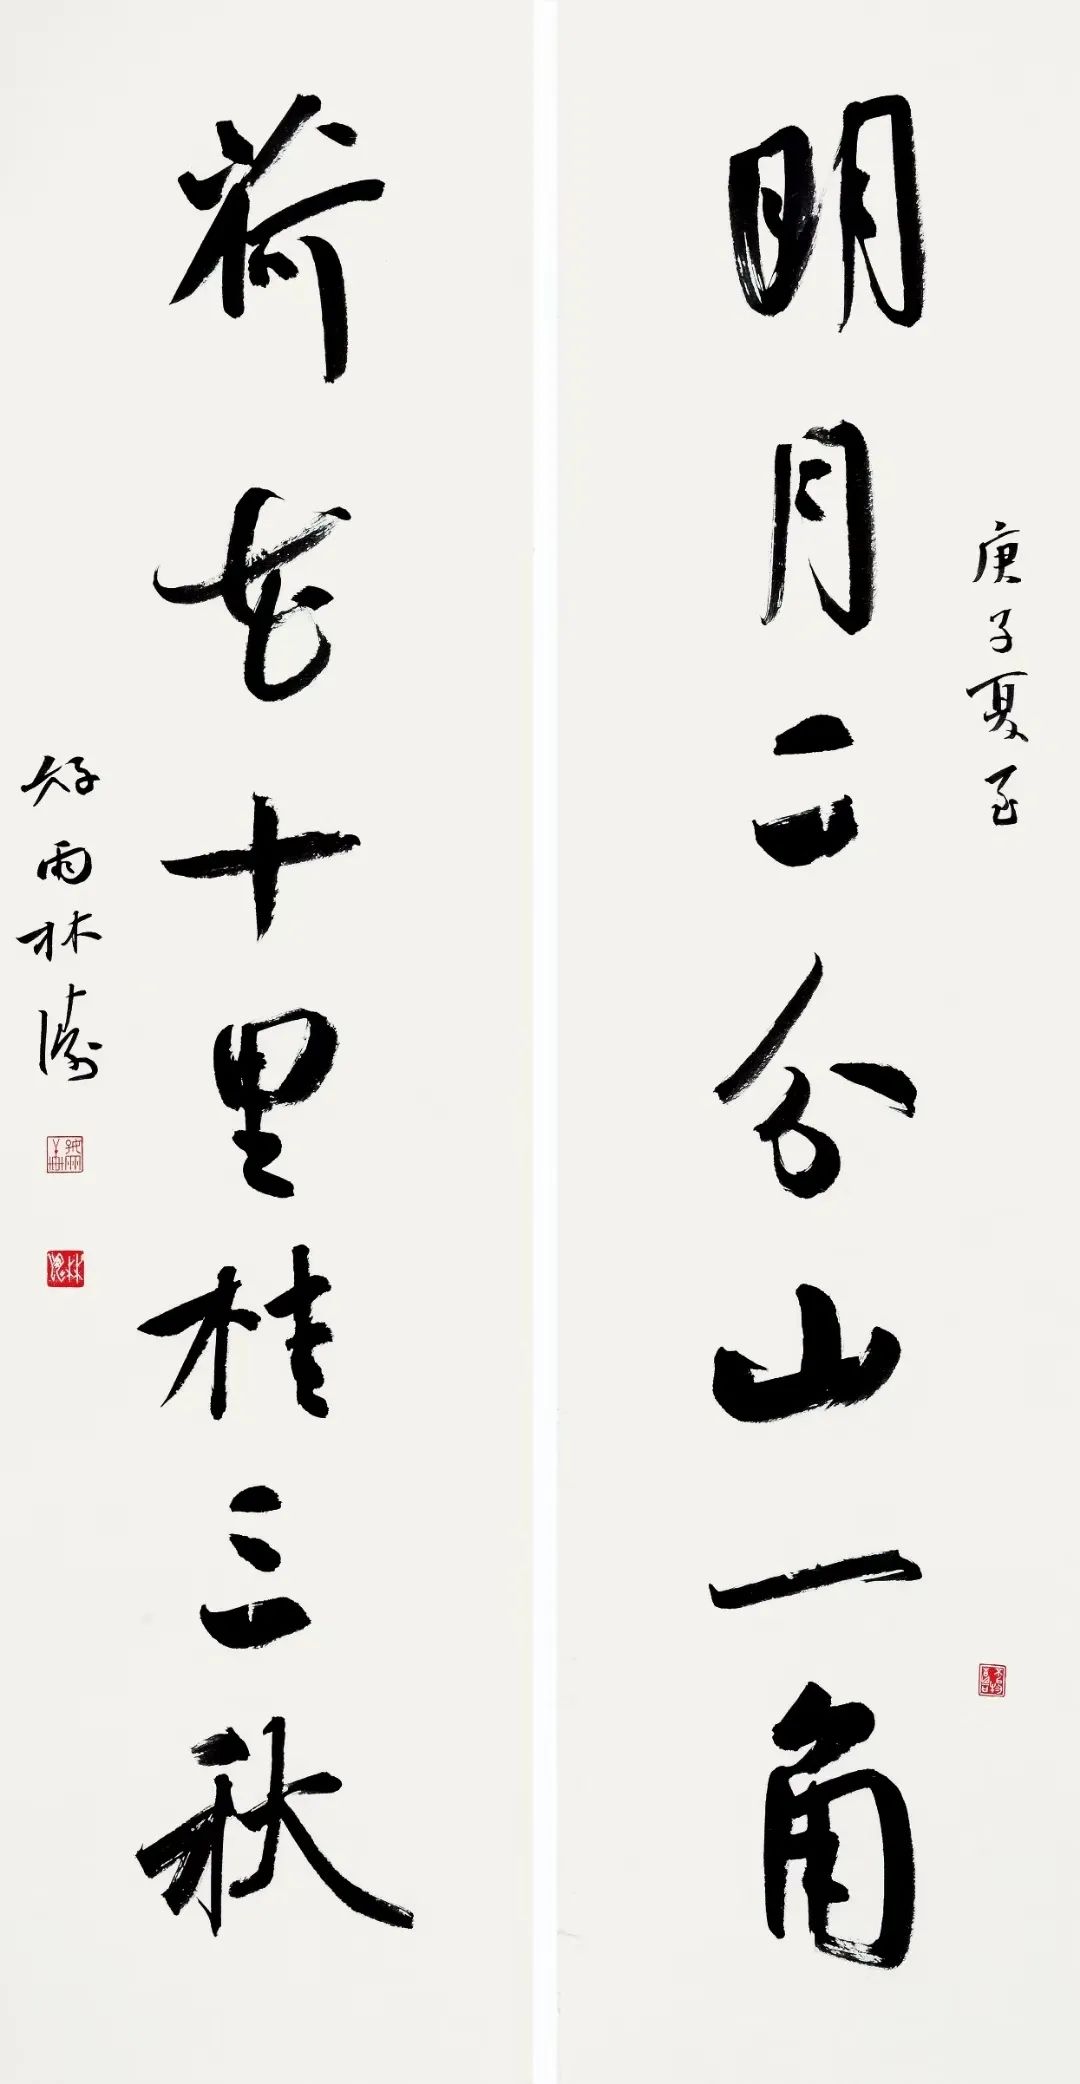 庚子夏至
明月二分山一角
荷花十里桂三秋
雨林涛